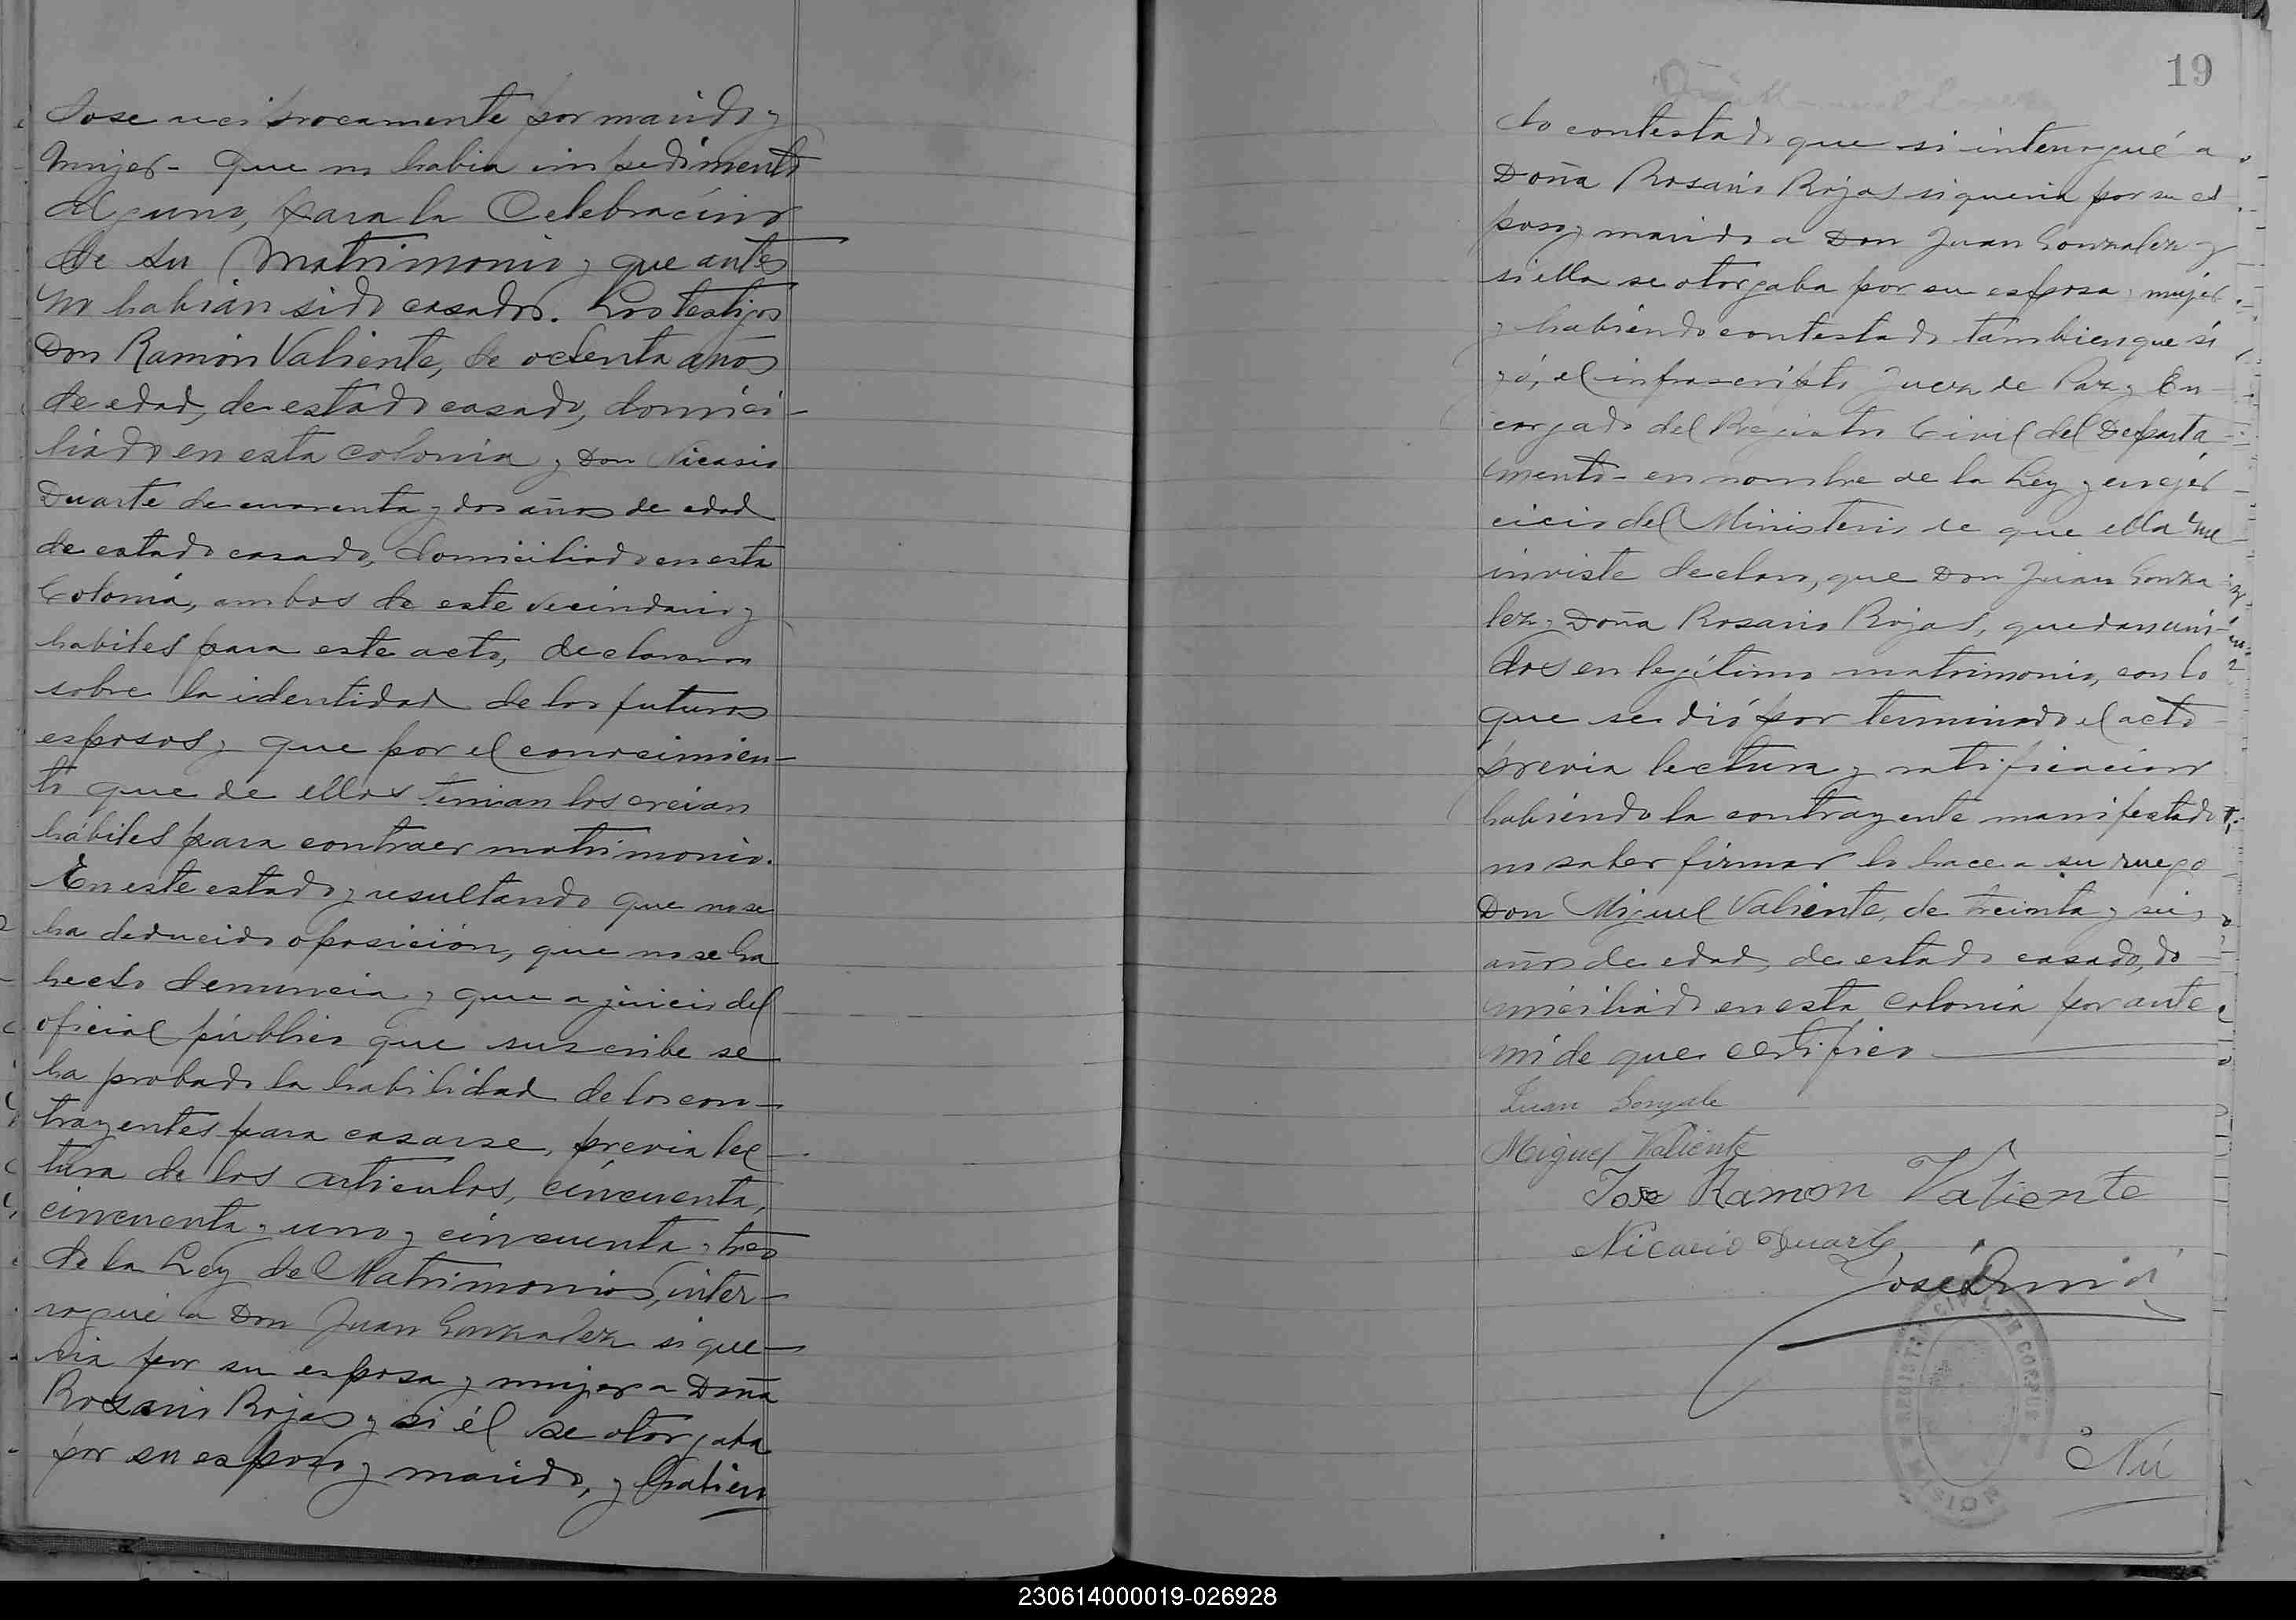 dose reciprocamente por marido y
mujer - que no habia impedimento
alguno, para la Celebración
de su Matrimonio y que antes
no habian sido casados. Los testigos
Don Ramón Valiente, de ochenta años
de edad, de estado casado, domici-
liado en esta colonia y Don Nicasio
Duarte de cuarenta y dos años de edad
de estado casado, domiciliado en esta
Colonia, ambos de este vecindario y
habiles para este acto, declararon
sobre la identidad de los futuros
esposos y que por el conocimien-
to que de ellos tenian los creian
hábiles para contraer matrimonio.
En este estado y resultando que no se
ha deducido oposición, que no se ha
hecho denuncia y que a juicio del
oficial público que suscribe se
ha probado la habilidad de los con-
trayentes para casarse, previa lec-
tura de los articulos, cincuenta,
cincuenta y uno y cincuenta y tres
de la Ley del Matrimonio, inter-
rogué a Don Juan Gonzalez si que-
ria por su esposa y mujer a Doña
Rosario Rojas y si él se otorgaba
por su esposo y marido, y habien
19
do contestado que si interrogué a
Doña Rosario Rojas si queria por su es
poso y marido a Don Juan Gonzalez y
si ella se otorgaba por su esposa y mujer
y habiendo contestado tambien que si
yó, el infrascripto Juez de Paz y En-
cargado del Registro Civil del Departa-
mento - en nombre de la Ley y en ejer
cicio del Ministerio de que ella me
inviste declaro, que Don Juan Gonza
lez y Doña Rosario Rojas, quedan uni-
dos en legítimo matrimonio, con lo
que se dió por terminado el acto
previa lectura y ratificacion
habiendo la contrayente manifestado
no saber firmar lo hace a su ruego
Don Miguel Valiente, de treinta y seis
años de edad, de estado casado, do-
miciliado en esta colonia por ante
mí de que certifico
Juan Gonzale
Miguel Valiente
Jose Ramon Valiente
Nicacio Duarte
José
REGISTRO CIVIL DE CORPUS
MISIONES
Nú
230614000019-026928